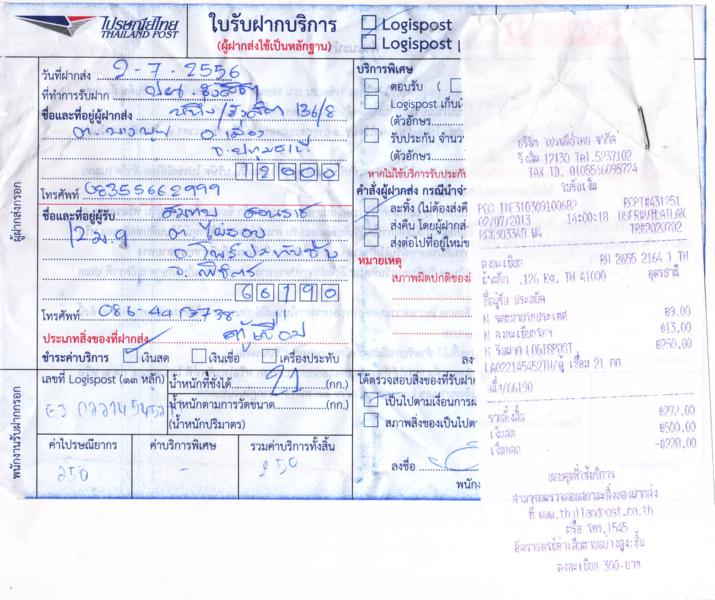 ไปรษณีย์ไทย
THAILAND POST
ใบรับฝากบริการ
(ผู้ฝากส่งใช้เป็นหลักฐาน)
Logispost
Logispost
ผู้ฝากส่งกรอก
วันที่ฝากส่ง 2-7-2556
ที่ทำการรับฝาก ปณ.รังสิต
ชื่อและที่อยู่ผู้ฝากส่ง 136/8
อ.เมือง
จ.ปทุมธานี
12000
โทรศัพท์ 08355662999
ชื่อและที่อยู่ผู้รับ
12 ม.9 ต.ไผ่รอบ
อ.โพธิ์ประทับช้าง
จ.พิจิตร
66190
โทรศัพท์
ประเภทสิ่งของที่ฝากส่ง ตู้เชื่อม
ชำระค่าบริการ เงินสด เงินเชื่อ เครื่องประทับ
พนักงานรับฝากกรอก
เลขที่ Logispost (๑๓ หลัก)
น้ำหนักที่ชั่งได้ 21 (กก.)
น้ำหนักตามการวัดขนาด (กก.)
(น้ำหนักปริมาตร)
ค่าไปรษณียากร ค่าบริการพิเศษ รวมค่าบริการทั้งสิ้น
250 - 250
บริการพิเศษ
ตอบรับ (
Logispost เก็บ
(ตัวอักษร
รับประกัน จำนว
(ตัวอักษร
หากไม่ใช้บริการรับประกัน
คำสั่งผู้ฝากส่ง กรณีนำจ่า
ละทิ้ง (ไม่ต้องส่งคืน
ส่งคืน โดยผู้ฝากส่ง
ส่งต่อไปที่อยู่ใหม่
หมายเหตุ
สภาพผิดปกติของ
ได้ตรวจสอบสิ่งของที่รับฝาก
เป็นไปตามเงื่อนการฝ
สภาพสิ่งของเป็นไปตา
ลงชื่อ
พนักง
บริษัท ไปรษณีย์ไทย จำกัด
รังสิต 12130 Tel.5237102
TAX ID. 0105546095724
ใบรับเงิน
RCPT#431251
02/07/2013 14:00:18
ลงทะเบียน RH 2655 2164 1 TH
น้ำหนัก .126 Kg. TH 41000 อุดรธานี
ชื่อผู้รับ ประหยัด
N จดหมายในประเทศ ฿9.00
N ลงทะเบียนในฯ ฿13.00
N รับฝาก LOGISPOST ฿250.00
เชื่อม 21 กก
/66190
รวมทั้งสิ้น ฿272.00
เงินสด ฿500.00
เงินทอน -฿228.00
ขอบคุณที่ใช้บริการ
สามารถตรวจสอบสถานะสิ่งของฝากส่ง
ที่ www.thailandpost.co.th
หรือ โทร.1545
อัตราชดใช้ค่าเสียหายอย่างสูง:ชิ้น
ลงทะเบียน 300-บาท